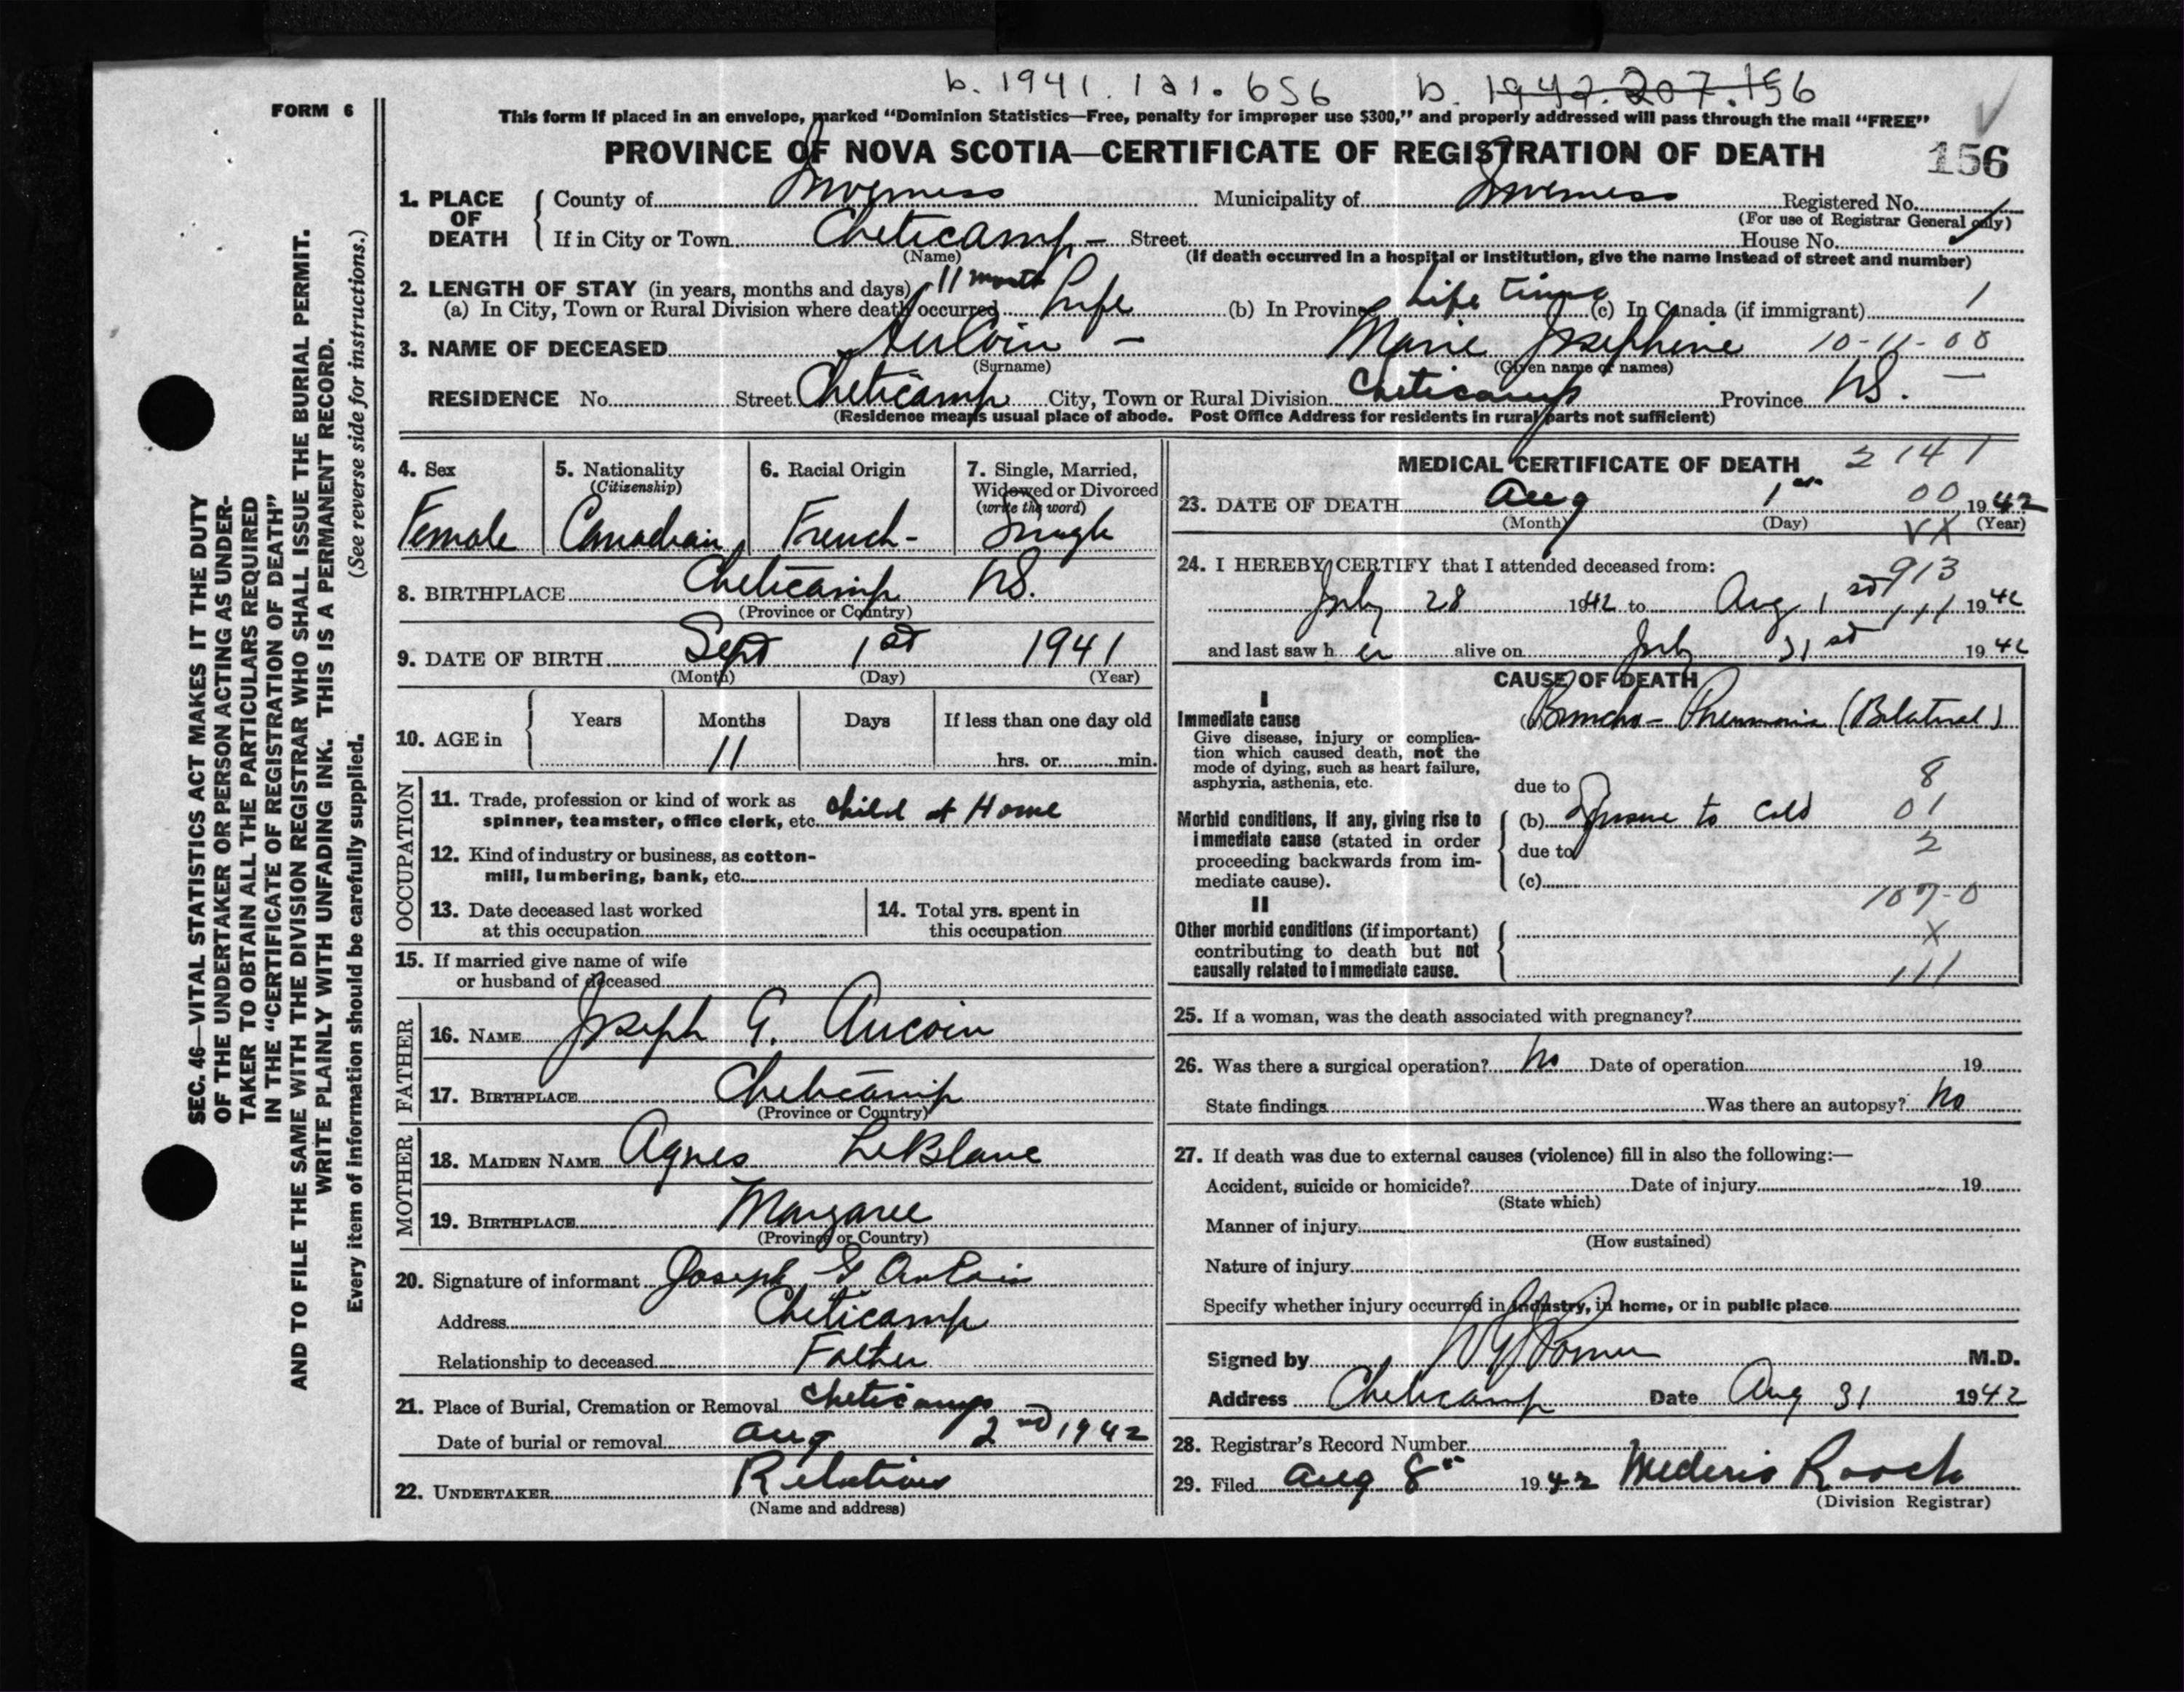 b. 1941. 121. 656 b. 1942. 207. 156
FORM 6
This form if placed in an envelope, marked “Dominion Statistics—Free, penalty for improper use $300,” and properly addressed will pass through the mail “FREE”
PROVINCE OF NOVA SCOTIA—CERTIFICATE OF REGISTRATION OF DEATH 156
1. PLACE OF DEATH
County of Inverness Municipality of Inverness Registered No.
(For use of Registrar General only)
If in City or Town Cheticamp - Street House No.
(Name) (If death occurred in a hospital or institution, give the name instead of street and number)
2. LENGTH OF STAY (in years, months and days) 11 month
(a) In City, Town or Rural Division where death occurred Life (b) In Province Life time (c) In Canada (if immigrant) 1
3. NAME OF DECEASED AuCoin - Marie Josephine 10-11-00
(Surname) (Given name or names)
RESIDENCE No. Street Cheticamp City, Town or Rural Division Cheticamp Province NS.
(Residence means usual place of abode. Post Office Address for residents in rural parts not sufficient)
4. Sex 5. Nationality (Citizenship) 6. Racial Origin 7. Single, Married, Widowed or Divorced (write the word)
Female Canadian French- Single
8. BIRTHPLACE Cheticamp NS.
(Province or Country)
9. DATE OF BIRTH Sept 1st 1941
(Month) (Day) (Year)
10. AGE in Years Months Days If less than one day old
11 hrs. or min.
OCCUPATION
11. Trade, profession or kind of work as
spinner, teamster, office clerk, etc. Child at Home
12. Kind of industry or business, as cotton-
mill, lumbering, bank, etc.
13. Date deceased last worked at this occupation
14. Total yrs. spent in this occupation
15. If married give name of wife
or husband of deceased
FATHER
16. NAME Joseph G. Aucoin
17. BIRTHPLACE Cheticamp
(Province or Country)
MOTHER
18. MAIDEN NAME Agnes LeBlanc
19. BIRTHPLACE Margaree
(Province or Country)
20. Signature of informant Joseph G AuCoin
Address Cheticamp
Relationship to deceased Father
21. Place of Burial, Cremation or Removal Cheticamp
Date of burial or removal Aug 2nd 1942
22. UNDERTAKER Relatives
(Name and address)
MEDICAL CERTIFICATE OF DEATH 2141
23. DATE OF DEATH Aug 1st 00 1942
(Month) (Day) VX (Year)
24. I HEREBY CERTIFY that I attended deceased from: 913
July 28 1942 to Aug 1st 111 1942
and last saw her alive on July 31st 1942
CAUSE OF DEATH
I
Immediate cause Broncho-Pneumonia (Bilateral)
Give disease, injury or complica-
tion which caused death, not the
mode of dying, such as heart failure,
asphyxia, asthenia, etc.
due to 8
Morbid conditions, if any, giving rise to
immediate cause (stated in order
proceeding backwards from im-
mediate cause).
(b) Exposure to cold 01
due to 2
(c)
107-0
II
Other morbid conditions (if important)
contributing to death but not
causally related to immediate cause.
X
111
25. If a woman, was the death associated with pregnancy?
26. Was there a surgical operation? No Date of operation 19
State findings Was there an autopsy? No
27. If death was due to external causes (violence) fill in also the following:—
Accident, suicide or homicide? Date of injury 19
(State which)
Manner of injury
(How sustained)
Nature of injury
Specify whether injury occurred in industry, in home, or in public place
Signed by M.D.
Address Cheticamp Date Aug 31 1942
28. Registrar's Record Number
29. Filed Aug 8th 1942 Mederic Roach
(Division Registrar)
SEC. 46—VITAL STATISTICS ACT MAKES IT THE DUTY
OF THE UNDERTAKER OR PERSON ACTING AS UNDER-
TAKER TO OBTAIN ALL THE PARTICULARS REQUIRED
IN THE “CERTIFICATE OF REGISTRATION OF DEATH”
AND TO FILE THE SAME WITH THE DIVISION REGISTRAR WHO SHALL ISSUE THE BURIAL PERMIT.
WRITE PLAINLY WITH UNFADING INK. THIS IS A PERMANENT RECORD.
Every item of information should be carefully supplied. (See reverse side for instructions.)